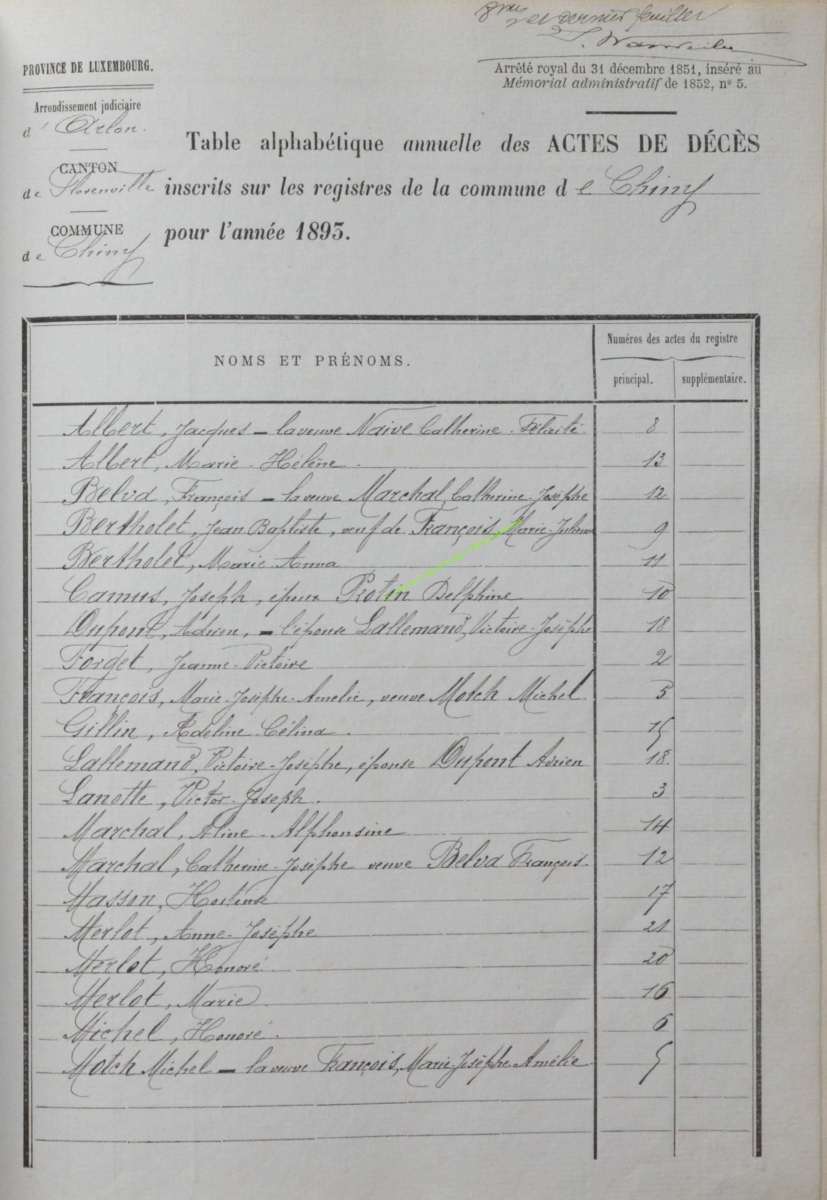 8me et dernier feuillet
PROVINCE DE LUXEMBOURG.
Arrêté royal du 31 décembre 1851, inséré au
Mémorial administratif de 1852, no 5.
Arrondissement judiciaire
d'Arlon.
CANTON
de Florenville
COMMUNE
de Chiny
Table alphabétique annuelle des ACTES DE DÉCÈS
inscrits sur les registres de la commune de Chiny
pour l'année 1893.
NOMS ET PRÉNOMS. Numéros des actes du registre
principal. supplémentaire.
Albert, Jacques – la veuve Naive Catherine-Félicité 8
Albert, Marie-Hélène. 13
Belva, François – la veuve Marchal, Catherine-Josèphe 12
Bertholet, Jean Baptiste, veuf de François, Marie-Julienne 9
Bertholet, Marie-Anna 11
Camus, Joseph, époux Protin Delphine 10
Dupont, Adrien, – l'épouse Lallemand, Victoire-Josèphe 18
Forget, Jeanne-Victoire 2
François, Marie-Josèphe-Amélie, veuve Motch Michel 5
Gillin, Adeline-Célina. 15
Lallemand, Victoire-Josèphe, épouse Dupont Adrien 18.
Lanotte, Victor-Joseph. 3
Marchal, Aline-Alphonsine 14
Marchal, Catherine-Josèphe veuve Belva François. 12
Masson, Hortense 17
Merlot, Anne-Josèphe 21
Merlot, Honoré. 20
Merlot, Marie. 16
Michel, Honoré. 6
Motch Michel – la veuve François, Marie Josèphe Amélie 5